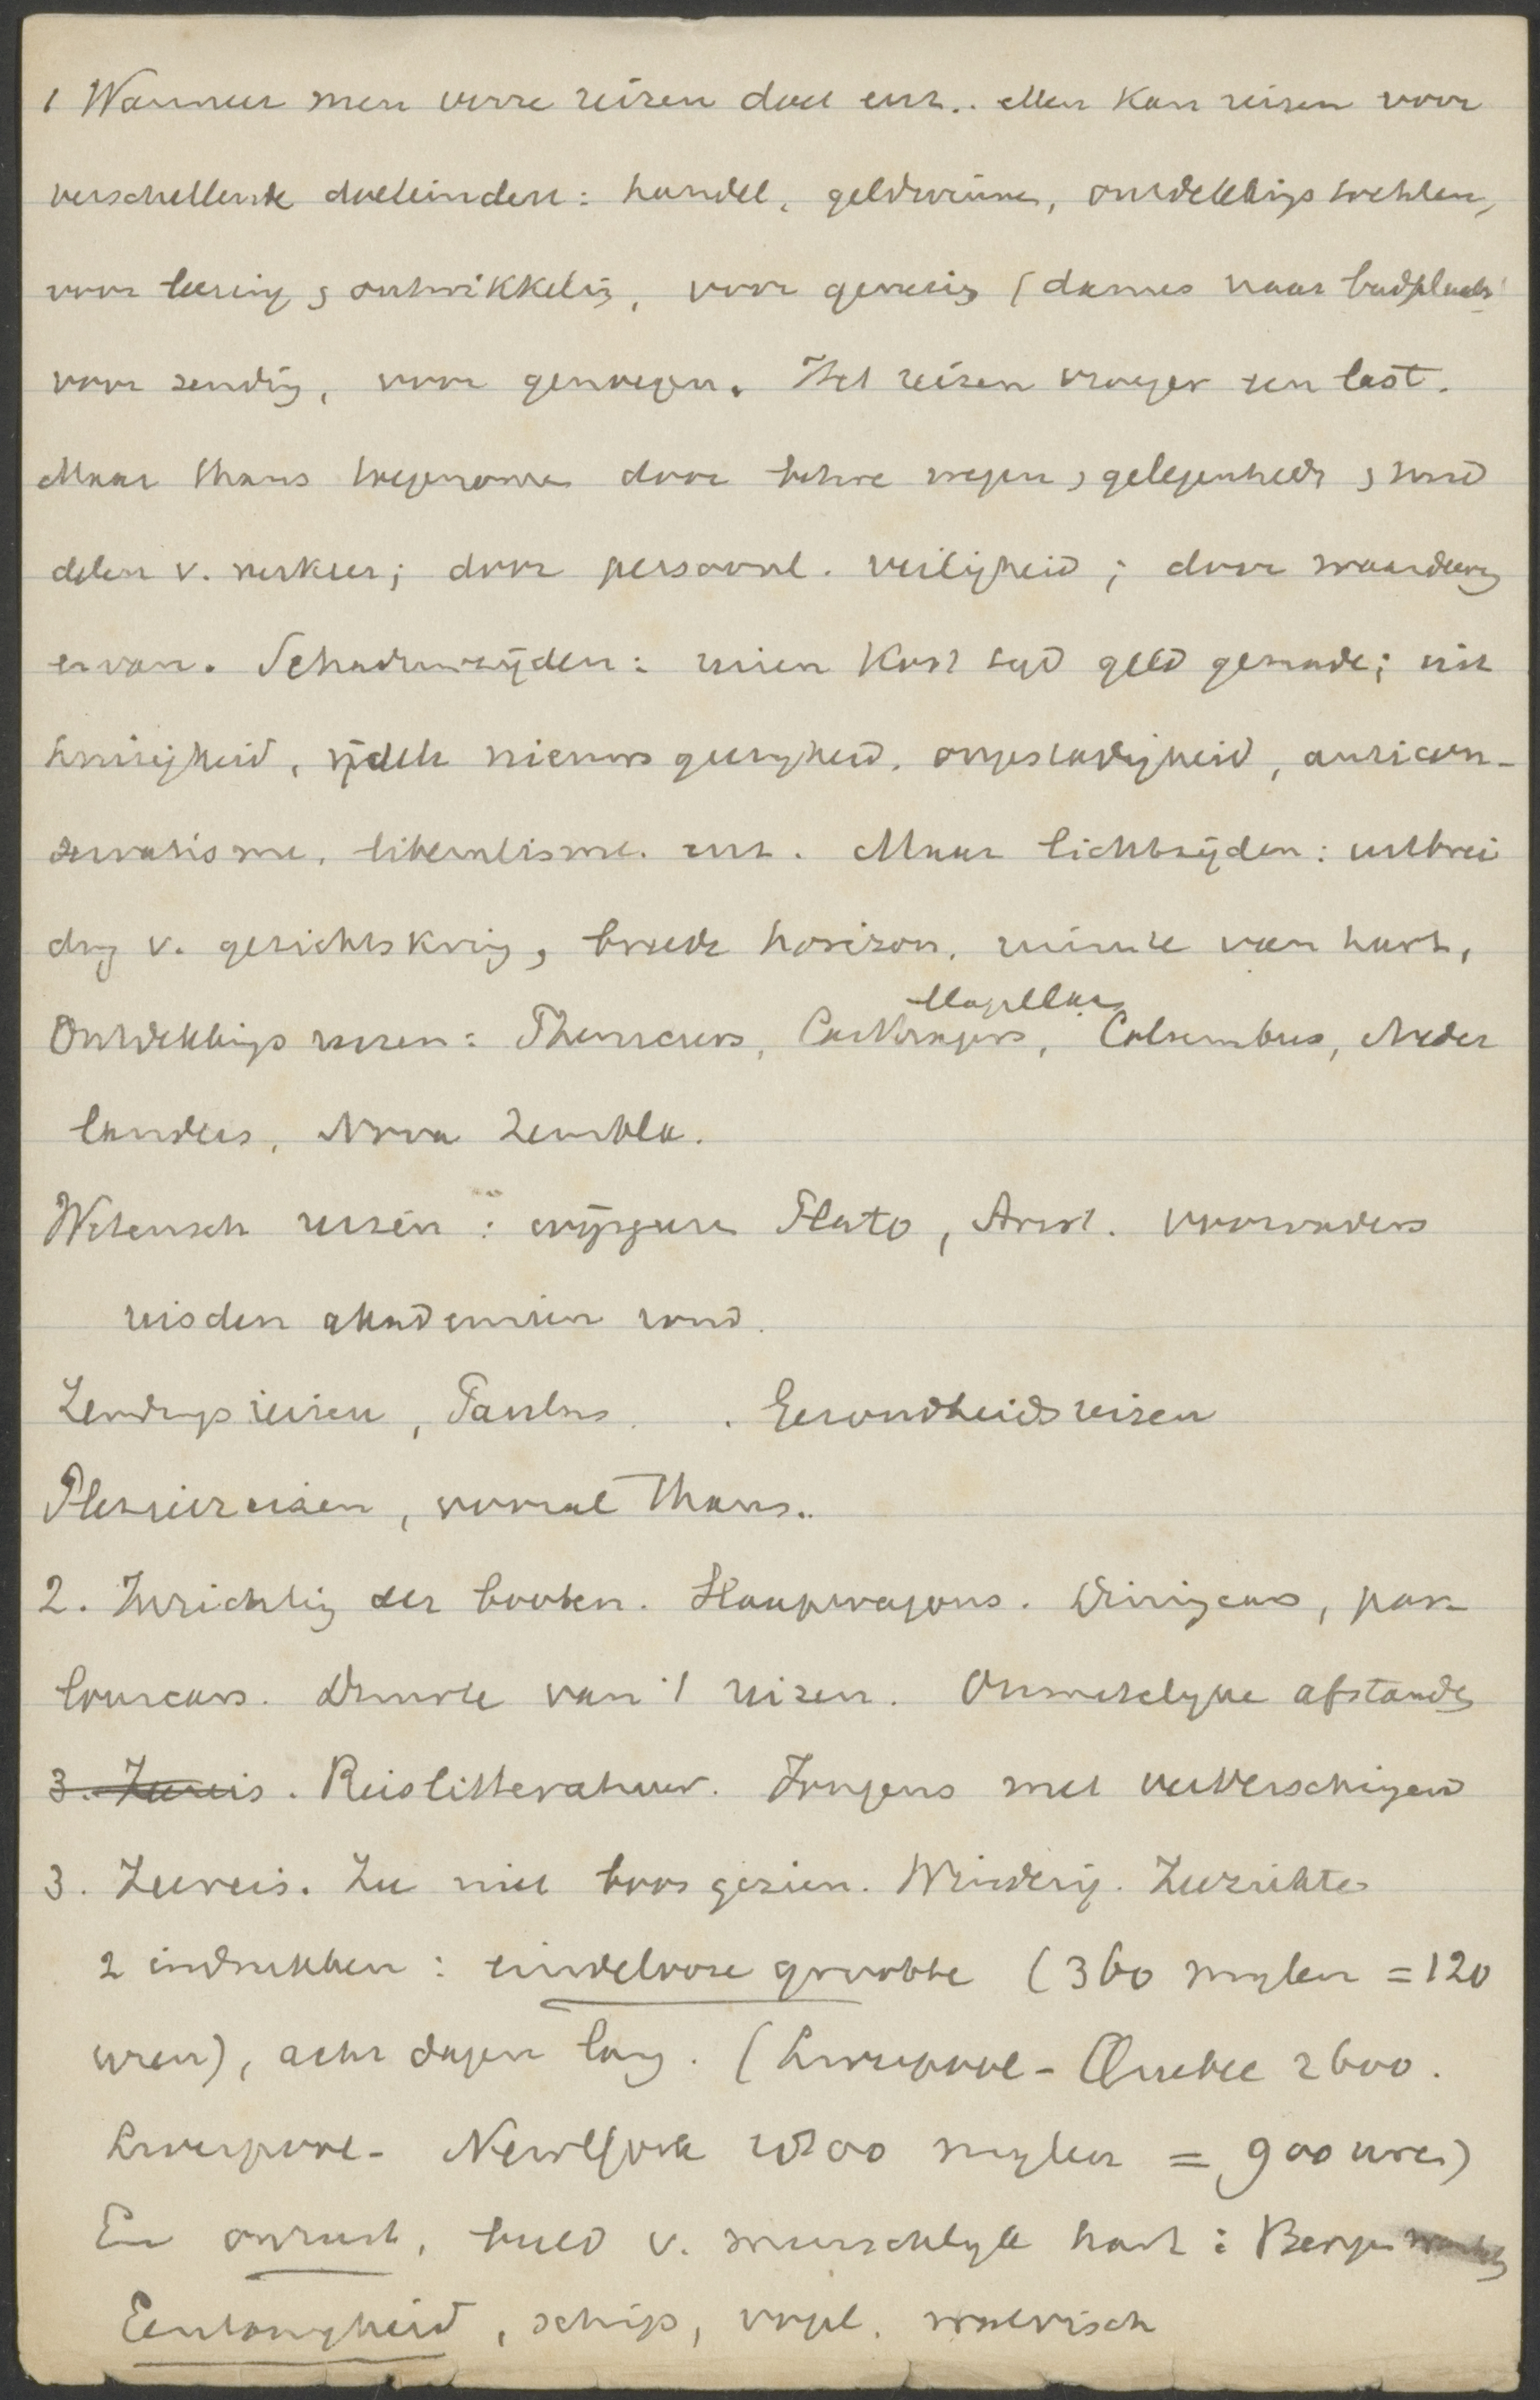 1 Wanneer men verre reizen doet enz.. Men kan reizen voor
verschillende doeleinden: handel, geldwinne, ontdekkings tochten,
voor leering & ontwikkeling, voor genezing (dames naar badplaats
voor zending, voor genoegen. Het reizen vroeger een last.
Maar thans toegenomen door betere wegen, gelegenheid, & mid
delen v. verkeer; door persoonl. veiligheid; door waardeering
ervan. Schaduwzijden: reizen kost tijd geld genade; uit
huizigheid, ijdele nieuwsgierigheid, ongestadigheid, anticon-
servatisme, liberalisme. enz. Maar lichtzijden: uitbrei
ding v. gezichtskring, breede horizon, ruimte van hart,
Ontdekkings reizen: Pheniciers, Carthagers, Magellaes Columbus, Neder
landers, Nova Zembla.
Wetensch reizen: wijsgeeren Plato, Arist. voorvaders
reisden akademien rond.
Zendings reizen, Paulus. . Gezondheids reizen
Pleizierreizen, vooral thans..
2. Inrichting der booten. Slaapwagons. Diningcars, par
lourcars. Duurte van 't reizen. Onmetelyke afstanden
3. Zeereis. Reislitteratuur. Jongens met ververschingen
3. Zeereis. Zee niet boos gezien. Winderig. Zeeziekte
2 indrukken: eindelooze grootte (360 mylen = 120
uren), acht dagen lang. (Liverpool - Quebec 2600.
Liverpool - NewYork 2800 mylen = 900 uren)
En onrust, beeld v. menschelyk hart:
Eentonigheid, schip, vogel, walvisch